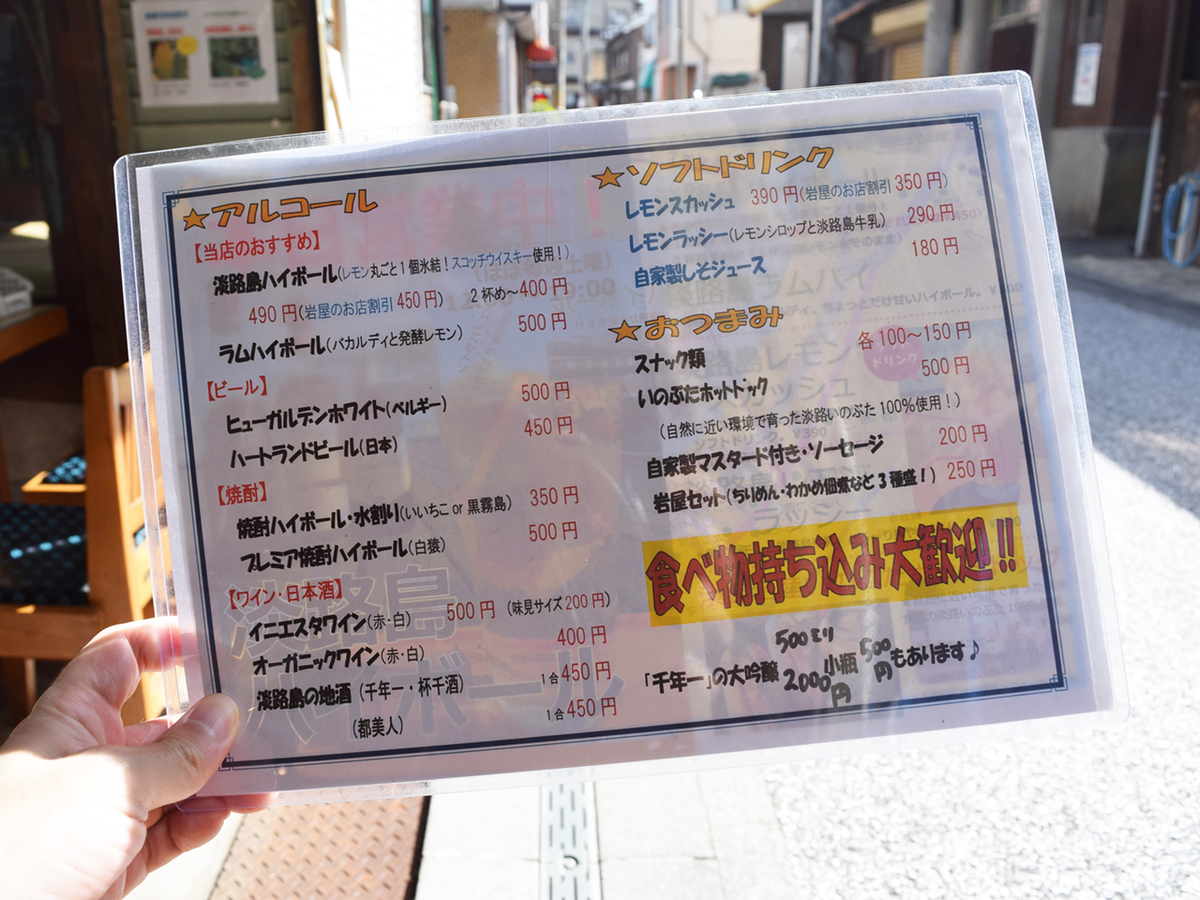 ★アルコール
【当店のおすすめ】
淡路島ハイボール(レモン丸ごと1個氷結！スコッチウイスキー使用！)
490円(岩屋のお店割引 450円) 2杯め～400円
ラムハイボール(バカルディと発酵レモン) 500円
【ビール】
ヒューガルデンホワイト(ベルギー) 500円
ハートランドビール(日本) 450円
【焼酎】
焼酎ハイボール・水割り(いいちこ or 黒霧島) 350円
プレミア焼酎ハイボール(白猿) 500円
【ワイン・日本酒】
イニエスタワイン(赤・白) 500円 (味見サイズ200円)
オーガニックワイン(赤・白) 400円
淡路島の地酒 (千年一・杯千酒) 1合450円
(都美人) 1合450円
★ソフトドリンク
レモンスカッシュ 390円(岩屋のお店割引 350円)
レモンラッシー(レモンシロップと淡路島牛乳) 290円
自家製しそジュース 180円
★おつまみ
スナック類 各100～150円
いのぶたホットドック 500円
(自然に近い環境で育った淡路いのぶた100%使用！)
自家製マスタード付き・ソーセージ 200円
岩屋セット(ちりめん・わかめ佃煮など3種盛！) 250円
食べ物持ち込み大歓迎!!
「千年一」の大吟醸 500より 2000円 小瓶 500円 もあります♪